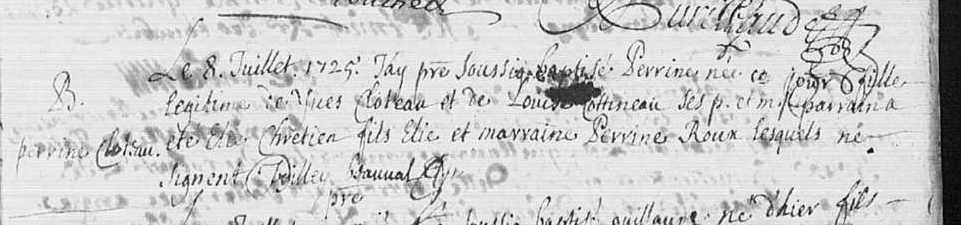 Le 8. Juillet. 1725. Jay pre soussig. baptisé Perrine née ce jour fille
B. legitime de Yues Cloteau et de Louise Cottineau ses p. et m. parrain a
perrine Cloteau. eté Elie Chretien fils Elie et marraine Perrine Roux lesquels ne
signent
pre
baptisé guillaume né d'hier fils